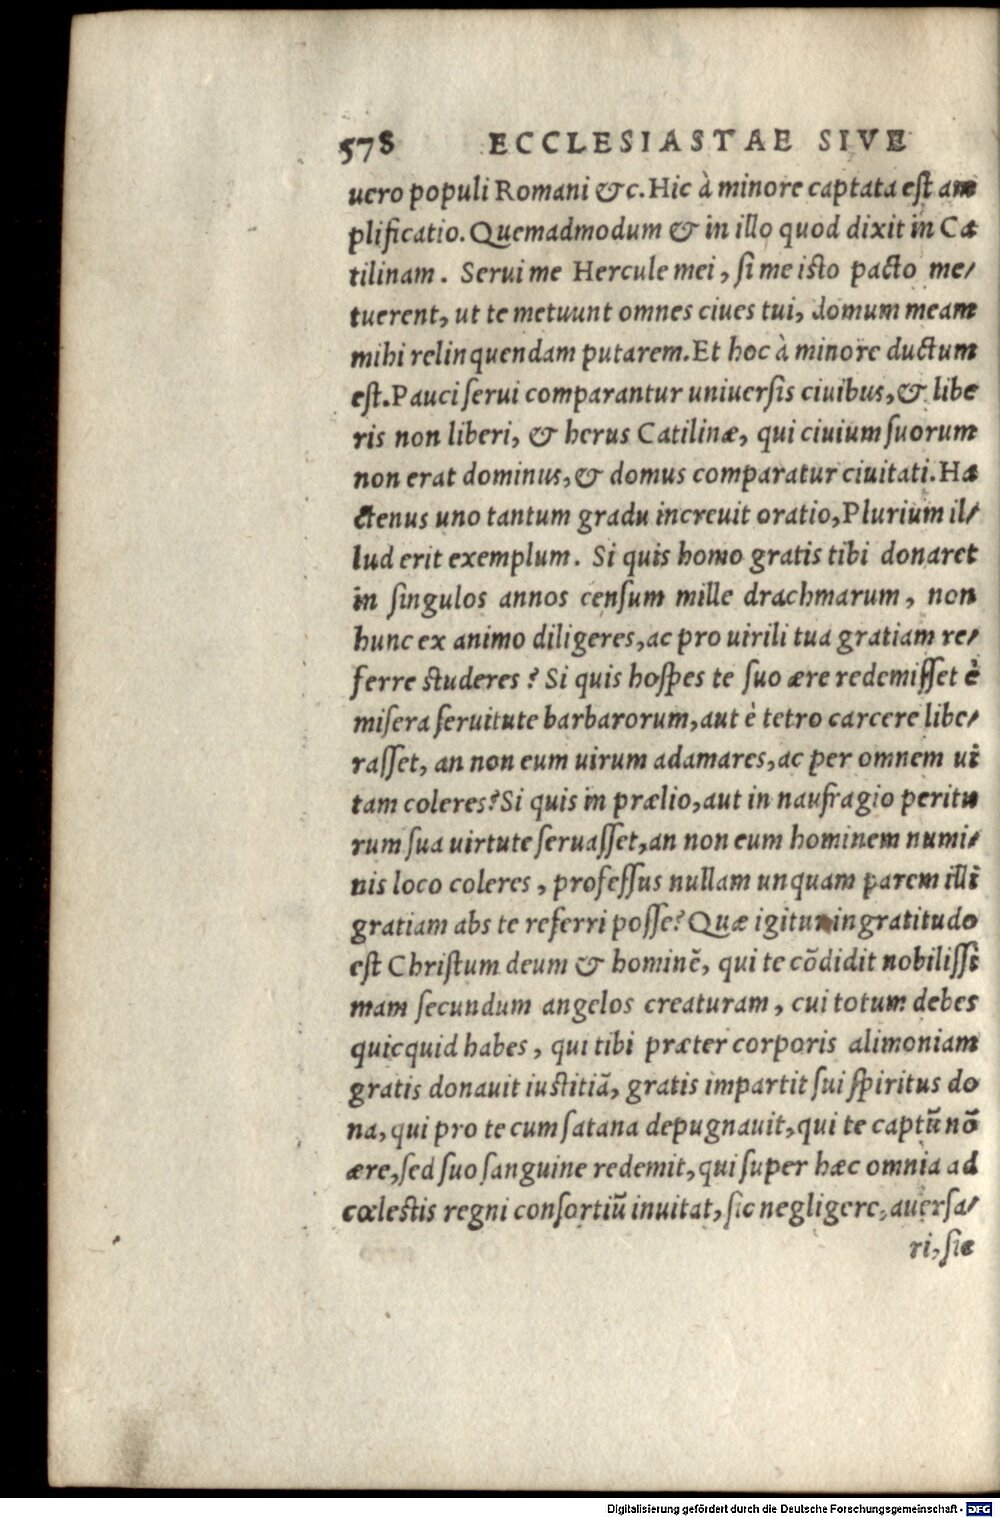 578 ECCLESIASTAE SIVE
uero populi Romani &c. Hic à minore captata est am
plificatio. Quemadmodum & in illo quod dixit in Ca
tilinam. Serui me Hercule mei, si me isto pacto me/
tuerent, ut te metuunt omnes ciues tui, domum meam
mihi relinquendam putarem. Et hoc à minore ductum
est. Pauci serui comparantur uniuersis ciuibus, & libe
ris non liberi, & herus Catilinæ, qui ciuium suorum
non erat dominus, & domus comparatur ciuitati. Ha
ctenus uno tantum gradu increuit oratio, Plurium il/
lud erit exemplum. Si quis homo gratis tibi donaret
in singulos annos censum mille drachmarum, non
hunc ex animo diligeres, ac pro uirili tua gratiam re/
ferre studeres? Si quis hospes te suo ære redemisset è
misera seruitute barbarorum, aut è tetro carcere libe/
rasset, an non eum uirum adamares, ac per omnem ui
tam coleres? Si quis in prælio, aut in naufragio peritu
rum sua uirtute seruasset, an non eum hominem numi/
nis loco coleres, professus nullam unquam parem illi
gratiam abs te referri posse? Quæ igitur ingratitudo
est Christum deum & hominē, qui te cōdidit nobilissi
mam secundum angelos creaturam, cui totum debes
quicquid habes, qui tibi præter corporis alimoniam
gratis donauit iustitiā, gratis impartit sui spiritus do
na, qui pro te cum satana depugnauit, qui te captū nō
ære, sed suo sanguine redemit, qui super hæc omnia ad
cœlestis regni consortiū inuitat, sic negligere, auersa/
ri, sic
Digitalisierung gefördert durch die Deutsche Forschungsgemeinschaft - DFG